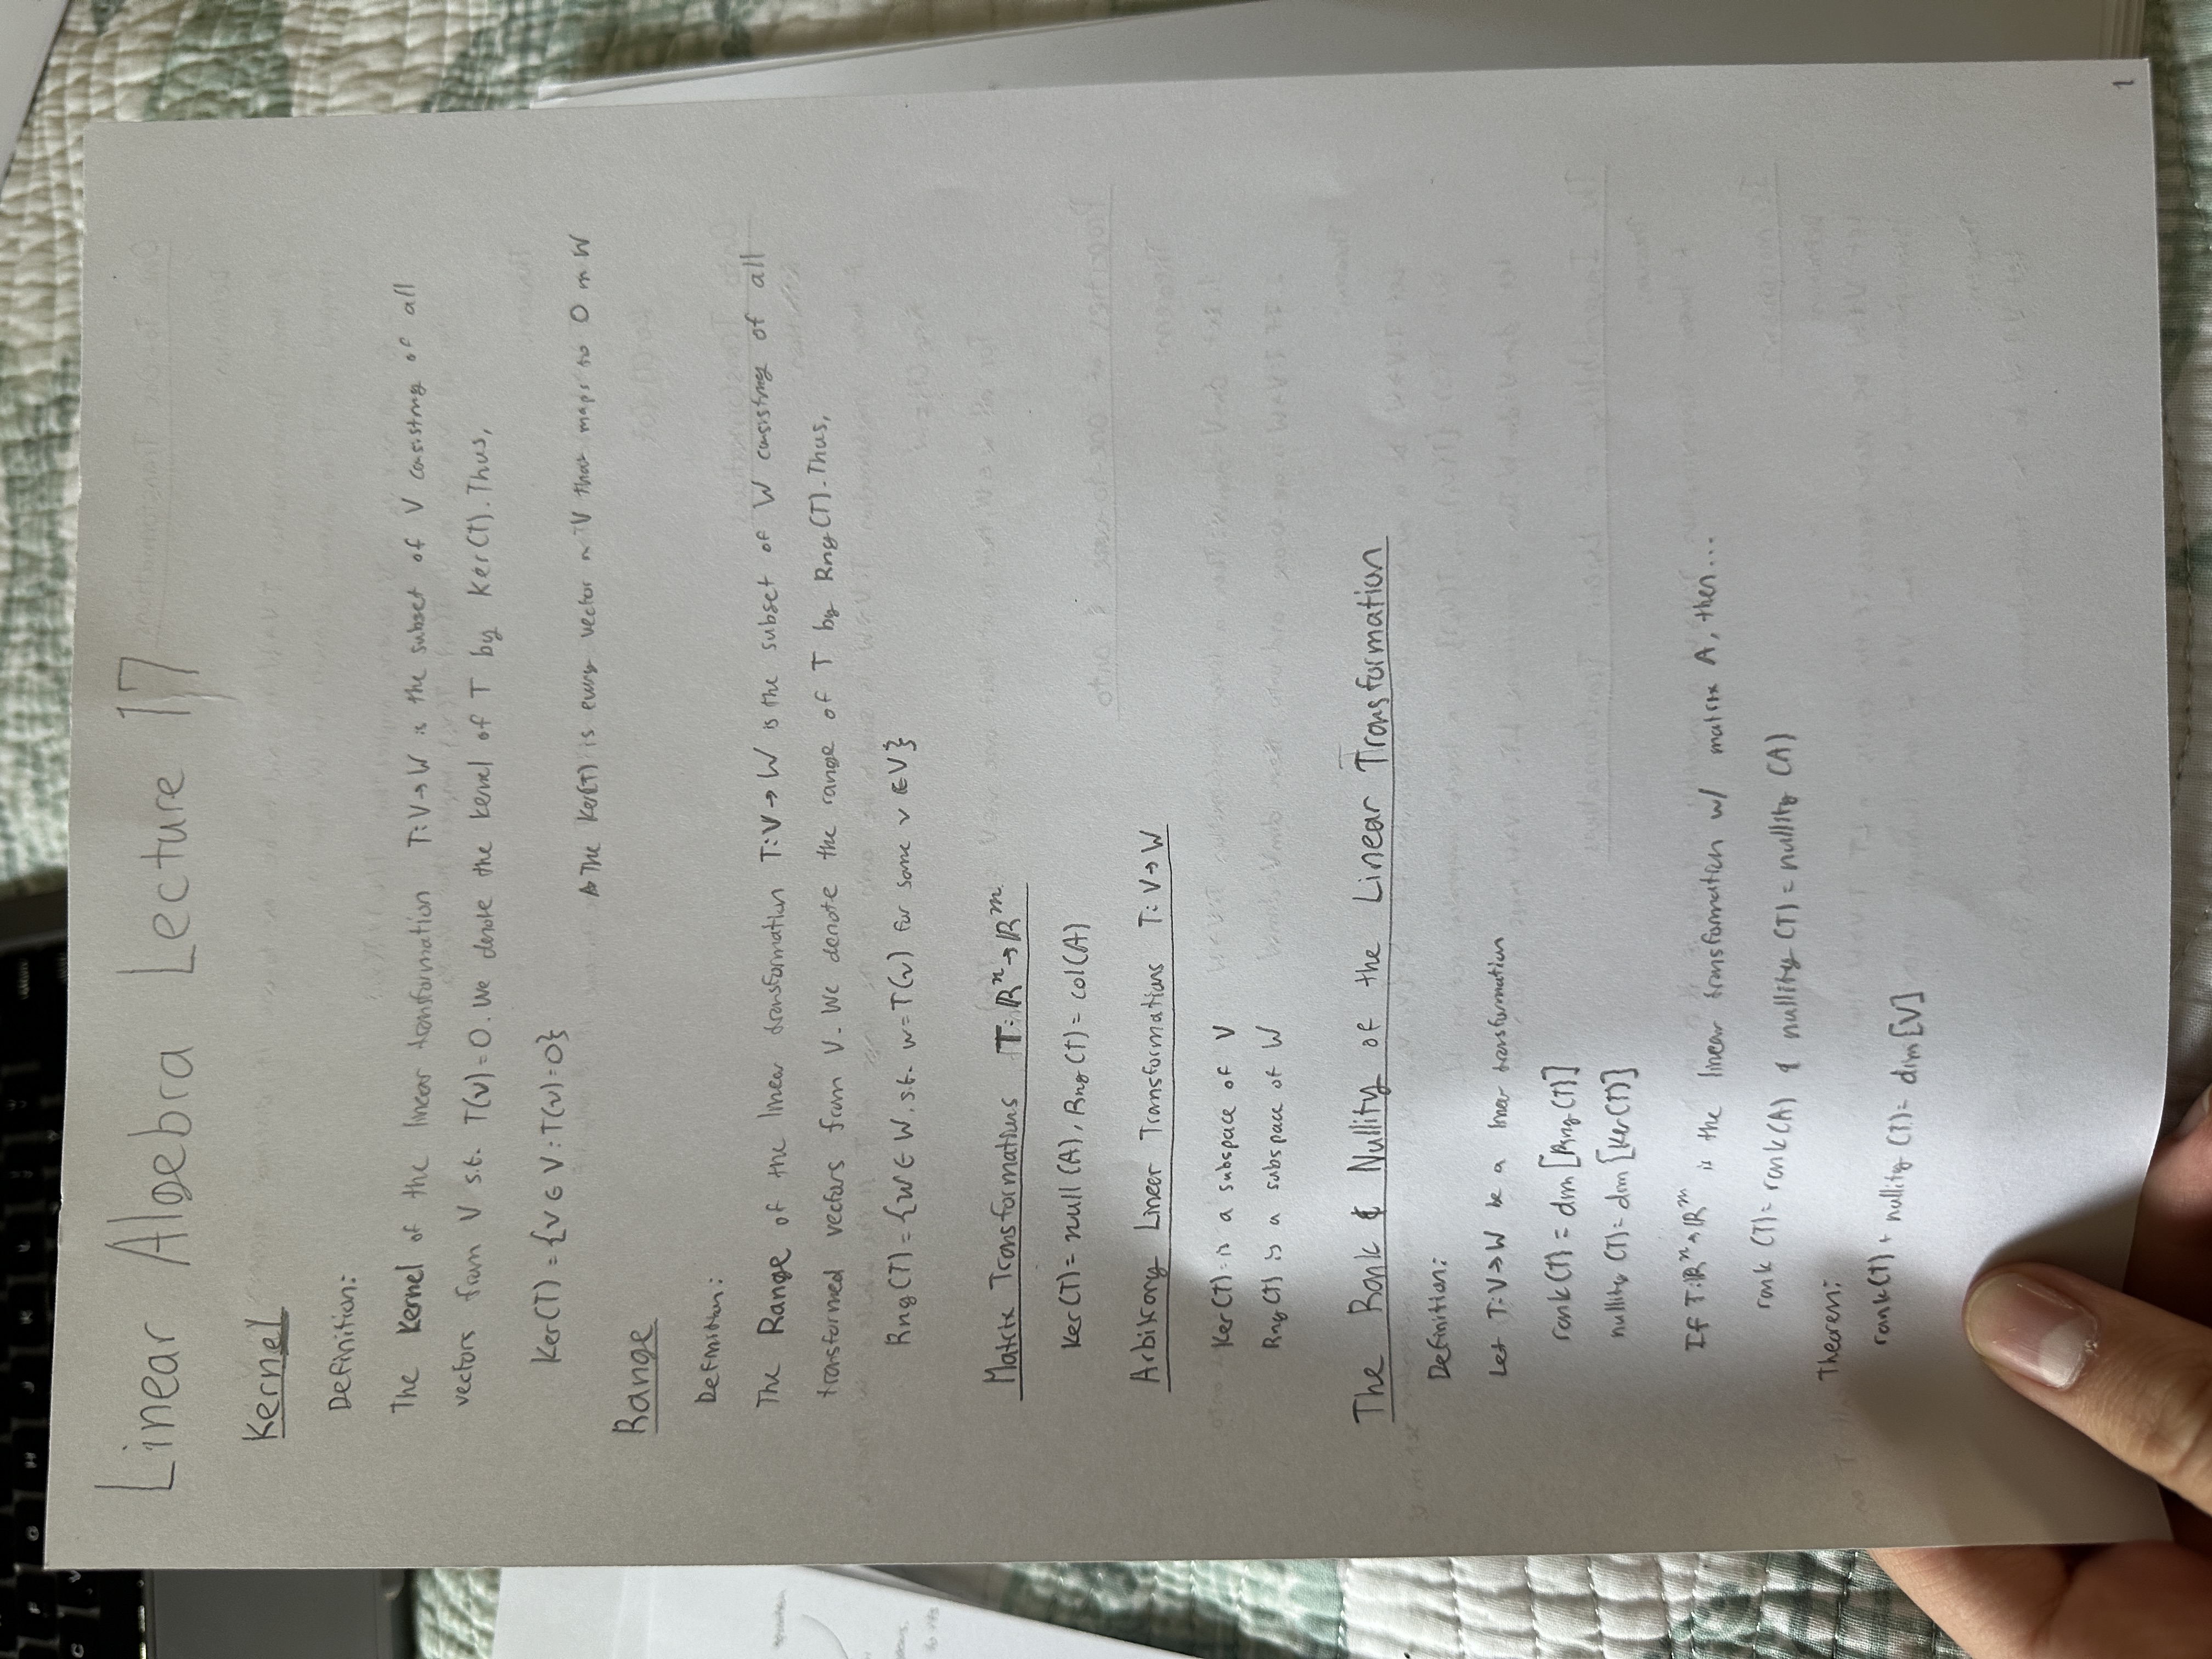 Linear Algebra Lecture 17
Kernel
Definition:
The Kernel of the linear transformation T:V→W is the subset of V consisting of all
vectors from V s.t. T(v)=0. We denote the kernel of T by Ker(T). Thus,
Ker(T) = {v ∈ V : T(v)=0}
The Ker(T) is every vector in V that maps to 0 in W
Range
Definition:
The Range of the linear transformation T:V→W is the subset of W consisting of all
transformed vectors from V. We denote the range of T by Rng(T). Thus,
Rng(T) = {w ∈ W. s.t. w=T(v) for some v ∈ V}
Matrix Transformations T: ℝⁿ→ℝᵐ
Ker(T) = null(A), Rng(T) = col(A)
Arbitrary Linear Transformations T: V→W
Ker(T) is a subspace of V
Rng(T) is a subspace of W
The Rank & Nullity of the Linear Transformation
Definition:
Let T:V→W be a linear transformation
rank(T) = dim[Rng(T)]
nullity(T) = dim[Ker(T)]
If T:ℝⁿ→ℝᵐ is the linear transformation w/ matrix A, then...
rank(T) = rank(A) & nullity(T) = nullity(A)
Theorem:
rank(T) + nullity(T) = dim[V]
1